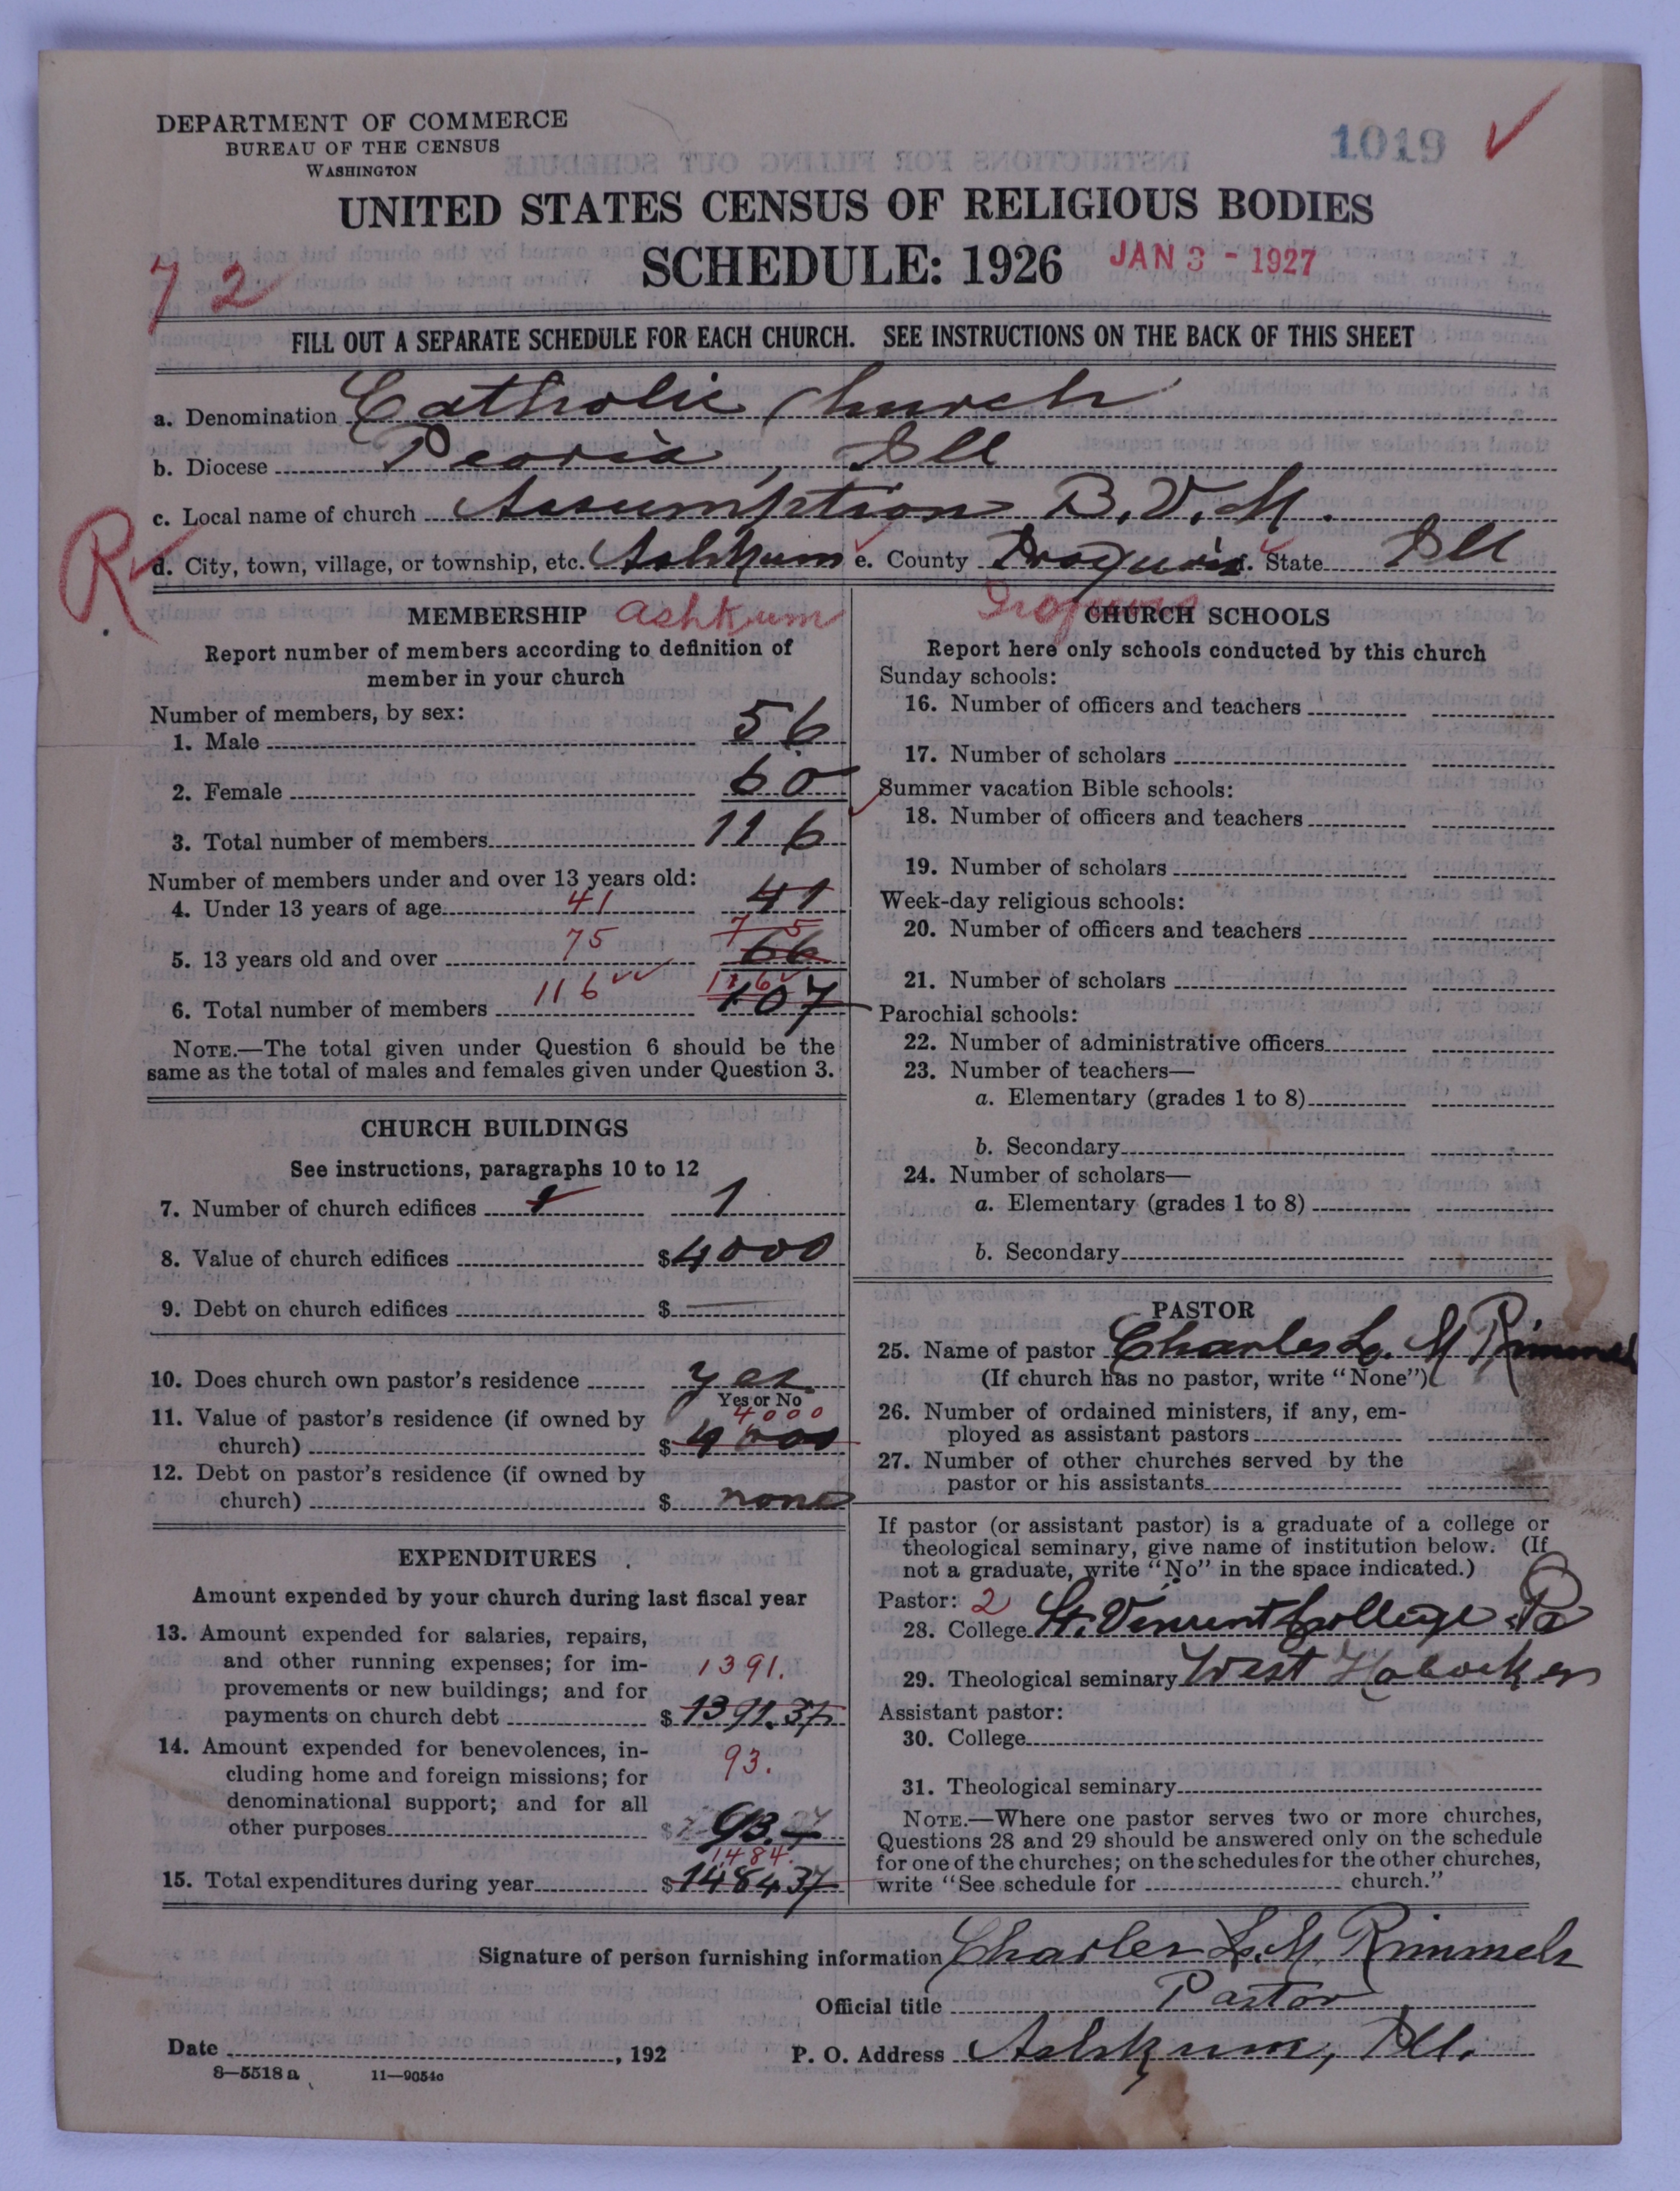 DEPARTMENT OF COMMERCE
BUREAU OF THE CENSUS
WASHINGTON
1019
UNITED STATES CENSUS OF RELIGIOUS BODIES
SCHEDULE: 1926
JAN 3 - 1927
72
FILL OUT A SEPARATE SCHEDULE FOR EACH CHURCH. SEE INSTRUCTIONS ON THE BACK OF THIS SHEET
a. Denomination Catholic Church
b. Diocese Peoria, Ill
c. Local name of church Assumption B.V.M.
R
d. City, town, village, or township, etc. Ashkum e. County Iroquois f. State Ill
MEMBERSHIP Ashkum
Report number of members according to definition of
member in your church
Number of members, by sex:
1. Male 56
2. Female 60
3. Total number of members 116
Number of members under and over 13 years old:
4. Under 13 years of age 41 41
5. 13 years old and over 75 75 66
6. Total number of members 116 116 107
NOTE.—The total given under Question 6 should be the
same as the total of males and females given under Question 3.
CHURCH BUILDINGS
See instructions, paragraphs 10 to 12
7. Number of church edifices 1 1
8. Value of church edifices $4000
9. Debt on church edifices $
10. Does church own pastor's residence yes
Yes or No
11. Value of pastor's residence (if owned by
4000
church) $4000
12. Debt on pastor's residence (if owned by
church) $ none
EXPENDITURES
Amount expended by your church during last fiscal year
13. Amount expended for salaries, repairs,
and other running expenses; for im-
1391.
provements or new buildings; and for
payments on church debt $1391.37
14. Amount expended for benevolences, in-
93.
cluding home and foreign missions; for
denominational support; and for all
other purposes $ 93.
1484.
15. Total expenditures during year $1484.37
Iroquois
CHURCH SCHOOLS
Report here only schools conducted by this church
Sunday schools:
16. Number of officers and teachers
17. Number of scholars
Summer vacation Bible schools:
18. Number of officers and teachers
19. Number of scholars
Week-day religious schools:
20. Number of officers and teachers
21. Number of scholars
Parochial schools:
22. Number of administrative officers
23. Number of teachers—
a. Elementary (grades 1 to 8)
b. Secondary
24. Number of scholars—
a. Elementary (grades 1 to 8)
b. Secondary
PASTOR
25. Name of pastor Charles L. M. Rimmels
(If church has no pastor, write "None")
26. Number of ordained ministers, if any, em-
ployed as assistant pastors
27. Number of other churches served by the
pastor or his assistants
If pastor (or assistant pastor) is a graduate of a college or
theological seminary, give name of institution below. (If
not a graduate, write "No" in the space indicated.)
Pastor: 2
28. College St. Vincent College Pa
29. Theological seminary West Hoboken
Assistant pastor:
30. College
31. Theological seminary
NOTE.—Where one pastor serves two or more churches,
Questions 28 and 29 should be answered only on the schedule
for one of the churches; on the schedules for the other churches,
write "See schedule for church."
Signature of person furnishing information Charles L. M. Rimmels
Official title Pastor
Date , 192
P. O. Address Ashkum, Ill.
8—5518 a 11—9054c